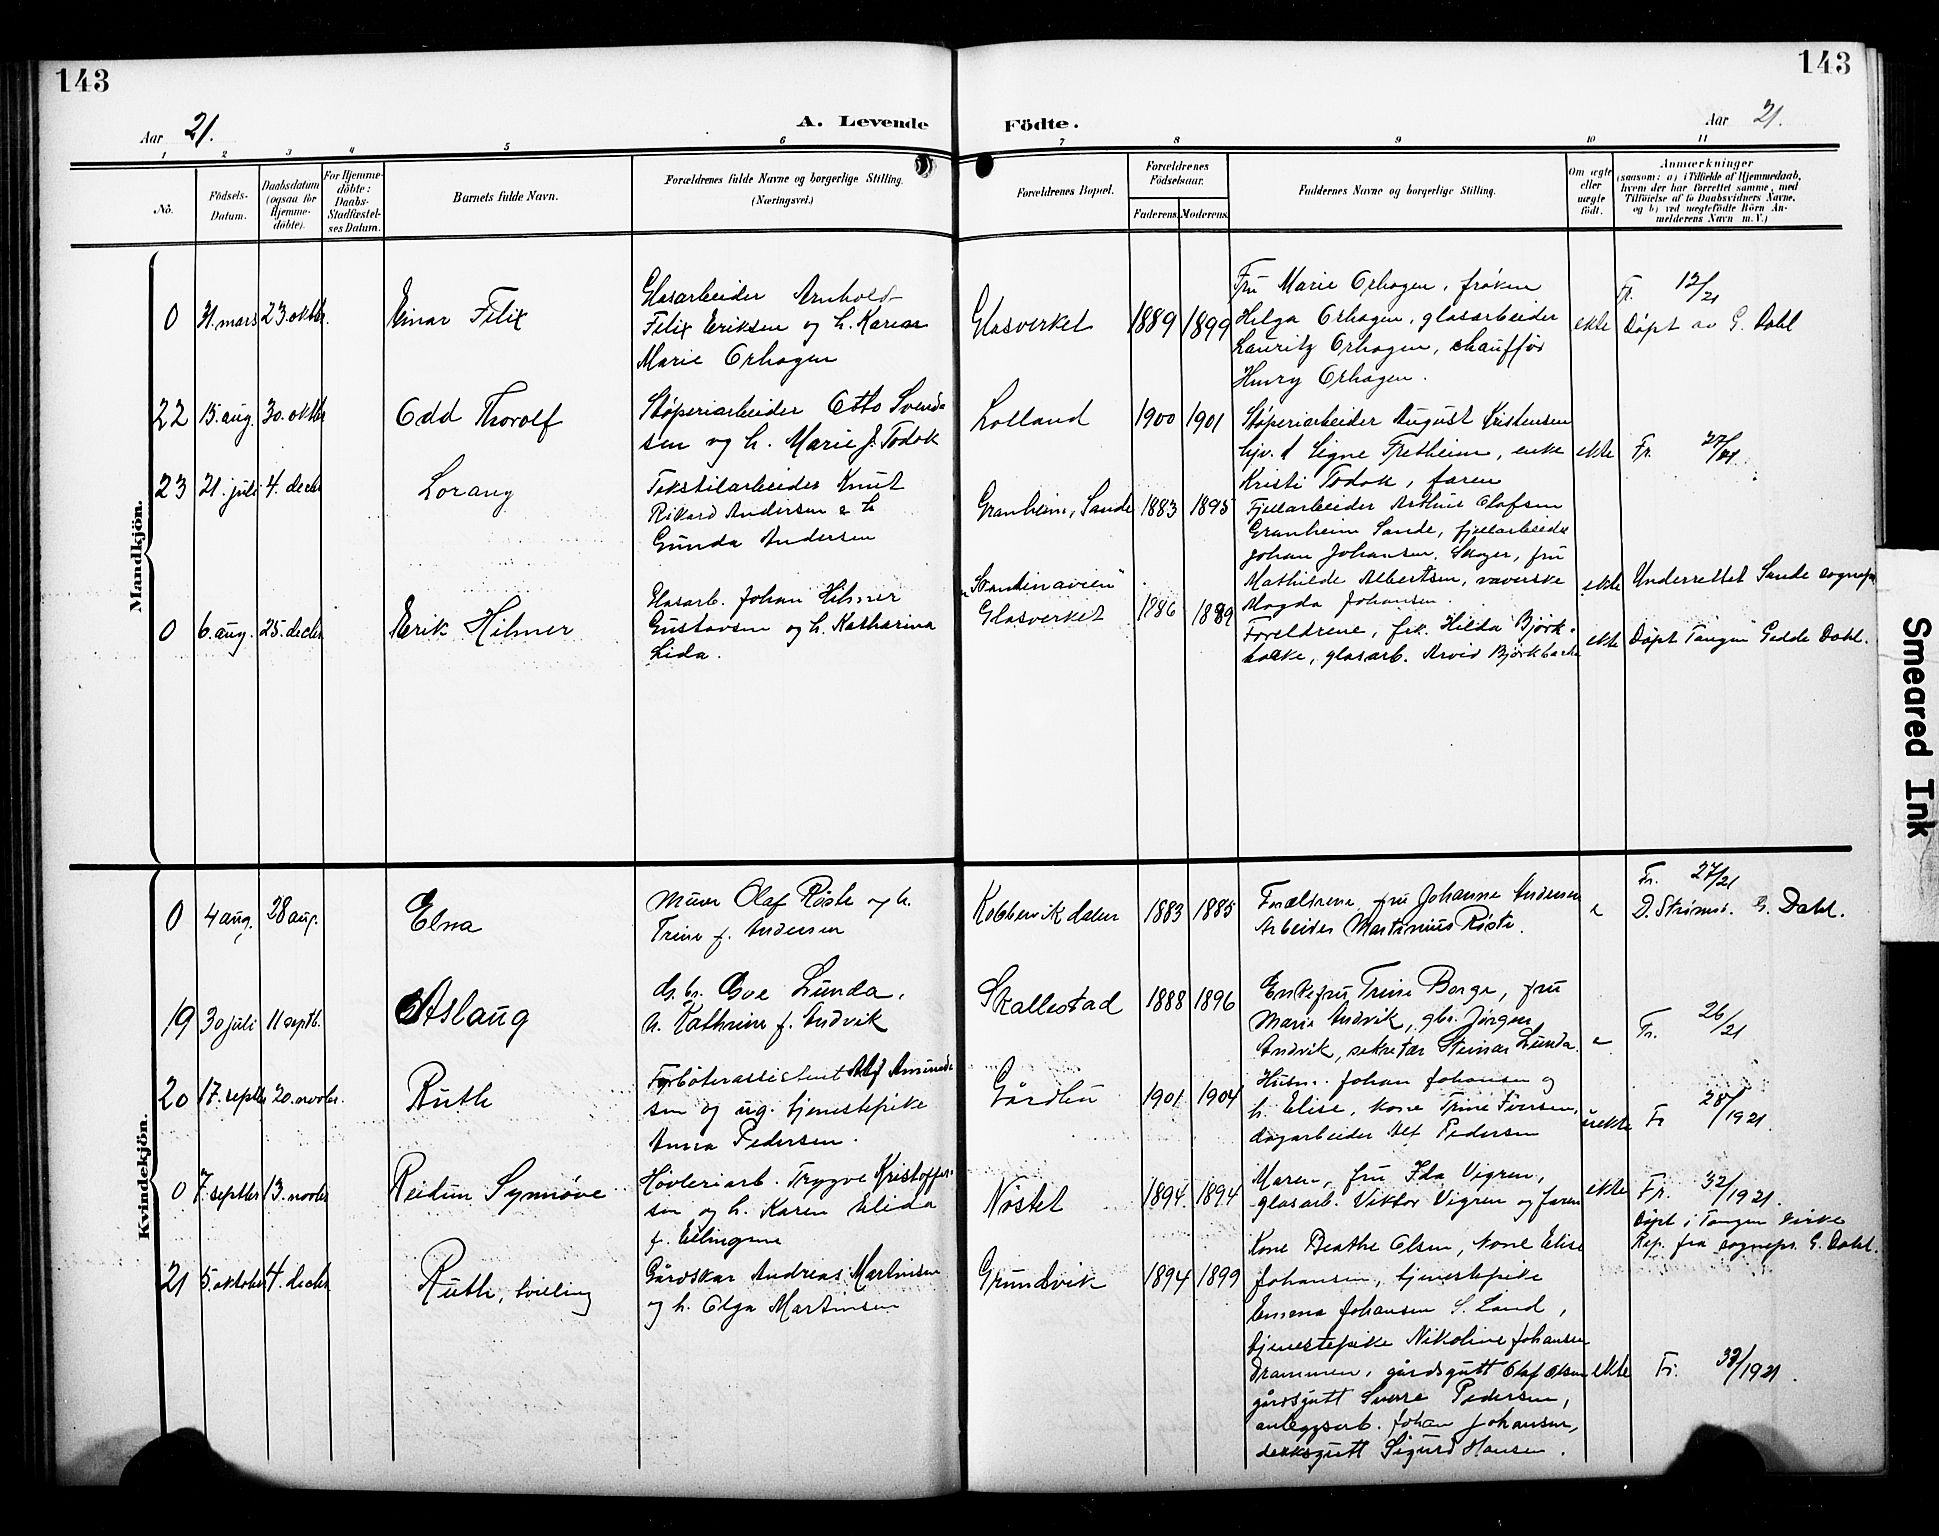 143
143
Aar 21.
A. Levende
Födte.
Aar 21.
1 2 3 4 5 6 7 8 9 10 11
No.
Födsels-Datum.
Daabsdatum (ogsaa for Hjemme-döbte).
For Hjemme-döbte: Daabs-Stadfæstel-ses Datum.
Barnets fulde Navn.
Forældrenes fulde Navne og borgerlige Stilling.
(Næringsvei.)
Forældrenes Bopæl.
Forældrenes Födselsaar.
Faderens. Moderens.
Faddernes Navne og borgerlige Stilling.
Om ægte eller uægte født.
Anmærkninger
(saasom: a) i Tilfælde af Hjemmedaab, hvem der har forrettet samme, med Tilföielse af to Daabsvidners Navne, og b) ved uægtefödte Börn Anmelderens Navn m. V.)
Mandkjön.
0 31. mars 23. oktbr. Einar Felix
Glasarbeider Arnhold
Felix Eriksen og h. Karias
Marie Orhagen
Glasverket 1889 1899
Fru Marie Orhagen, frøken
Helga Orhagen, glasarbeider
Lauritz Orhagen, chauffør
Henry Orhagen.
ekte
Fr. 12/21
Døpt av G. Dahl
22 15. aug. 30. oktbr Odd Thorolf
Støperiarbeider Otto Svend-
sen og h. Marie J. Todok
Lolland 1900 1901
Støperiarbeider August Kristensen
hjv. Signe Fretheim, enke
Kristi Todok, faren
ekte Fr. 27/21
23 21. juli 4. decbr Lorang
Tekstilarbeider Knut
Rikard Andersen & h
Gunda Andersen
Granheim, Sande 1883 1895
Fjellarbeider Arthur Olafsen
Granheim Sande, fjellarbeider
Johan Johansen, Skoger, fru
Mathilde Albertsen, væverske
Magda Johansen
ekte Underrettet Sande sognepr
0 6. aug. 25. decbr Erik Hilmer
Glasarb. Johan Hilmer
Gustavsen og h. Katharina
Lida.
"Skandinavien"
Glasverket 1886 1889
Foreldrene, frk. Hilda Björk-
backe, glasarb. Arvid Björkbacke
ekte Døpt Tangen Gedde Dahl.
Kvindekjön.
0 4 aug. 28 aug. Elna
Murer Olaf Røste og h.
Trine f. Andersen
Kobbervikdalen 1883 1885
Forældrene, fru Johanne Andersen
Arbeider Martinius Røste.
e
Fr. 27/21
D. Strømsö. G. Dahl.
19 30 juli 11 septb. Aslaug
G. br. Ove Lunda,
h. Kathrine f. Andvik
Skallestad 1888 1896
Enkefru Trine Borge, fru
Marie Andvik, gbr. Jørgen
Andvik, sekretær Steinar Lunda.
e Fr. 26/21
20 17. septbr 20. novbr. Ruth
Forbøterassistent Alf Amund-
sen og ug. tjenestepike
Anna Pedersen.
Gårdhu 1901 1904
Husm. Johan Johansen og
h. Elise, kone Trine Iversen,
dagarbeider Alf Pedersen
uekte Fr 28/1921.
0 7. septbr 13. novbr Reidun Synnøve
Høvleriarb. Trygve Kristoffer-
sen og h. Karen Elida
f. Ellingsen
Nøstet 1894. 1894
Moren, fru Ida Vigren,
glasarb. Viktor Vigren og faren
ekte Fr. 32/1921.
Døpt i Tangen kirke
Rep. fra sognepr. G. Dahl.
21 5. oktober 4. decbr Ruth, tvilling
Gårdskar Andreas Martinsen
og h. Olga Martinsen
Grundvik 1894 1899
Kone Beathe Olsen, kone Elise
Johansen, tjenestepike
Emma Johansen S. Land,
tjenestepike Nikoline Johansen
Drammen, gårdsgutt Olaf Olsen
gårdsgutt Sverre Pedersen,
anleggsarb. Johan Johansen,
dekksgutt Sigurd Hansen.
ekte Fr. 33/1921.
Smeared Ink